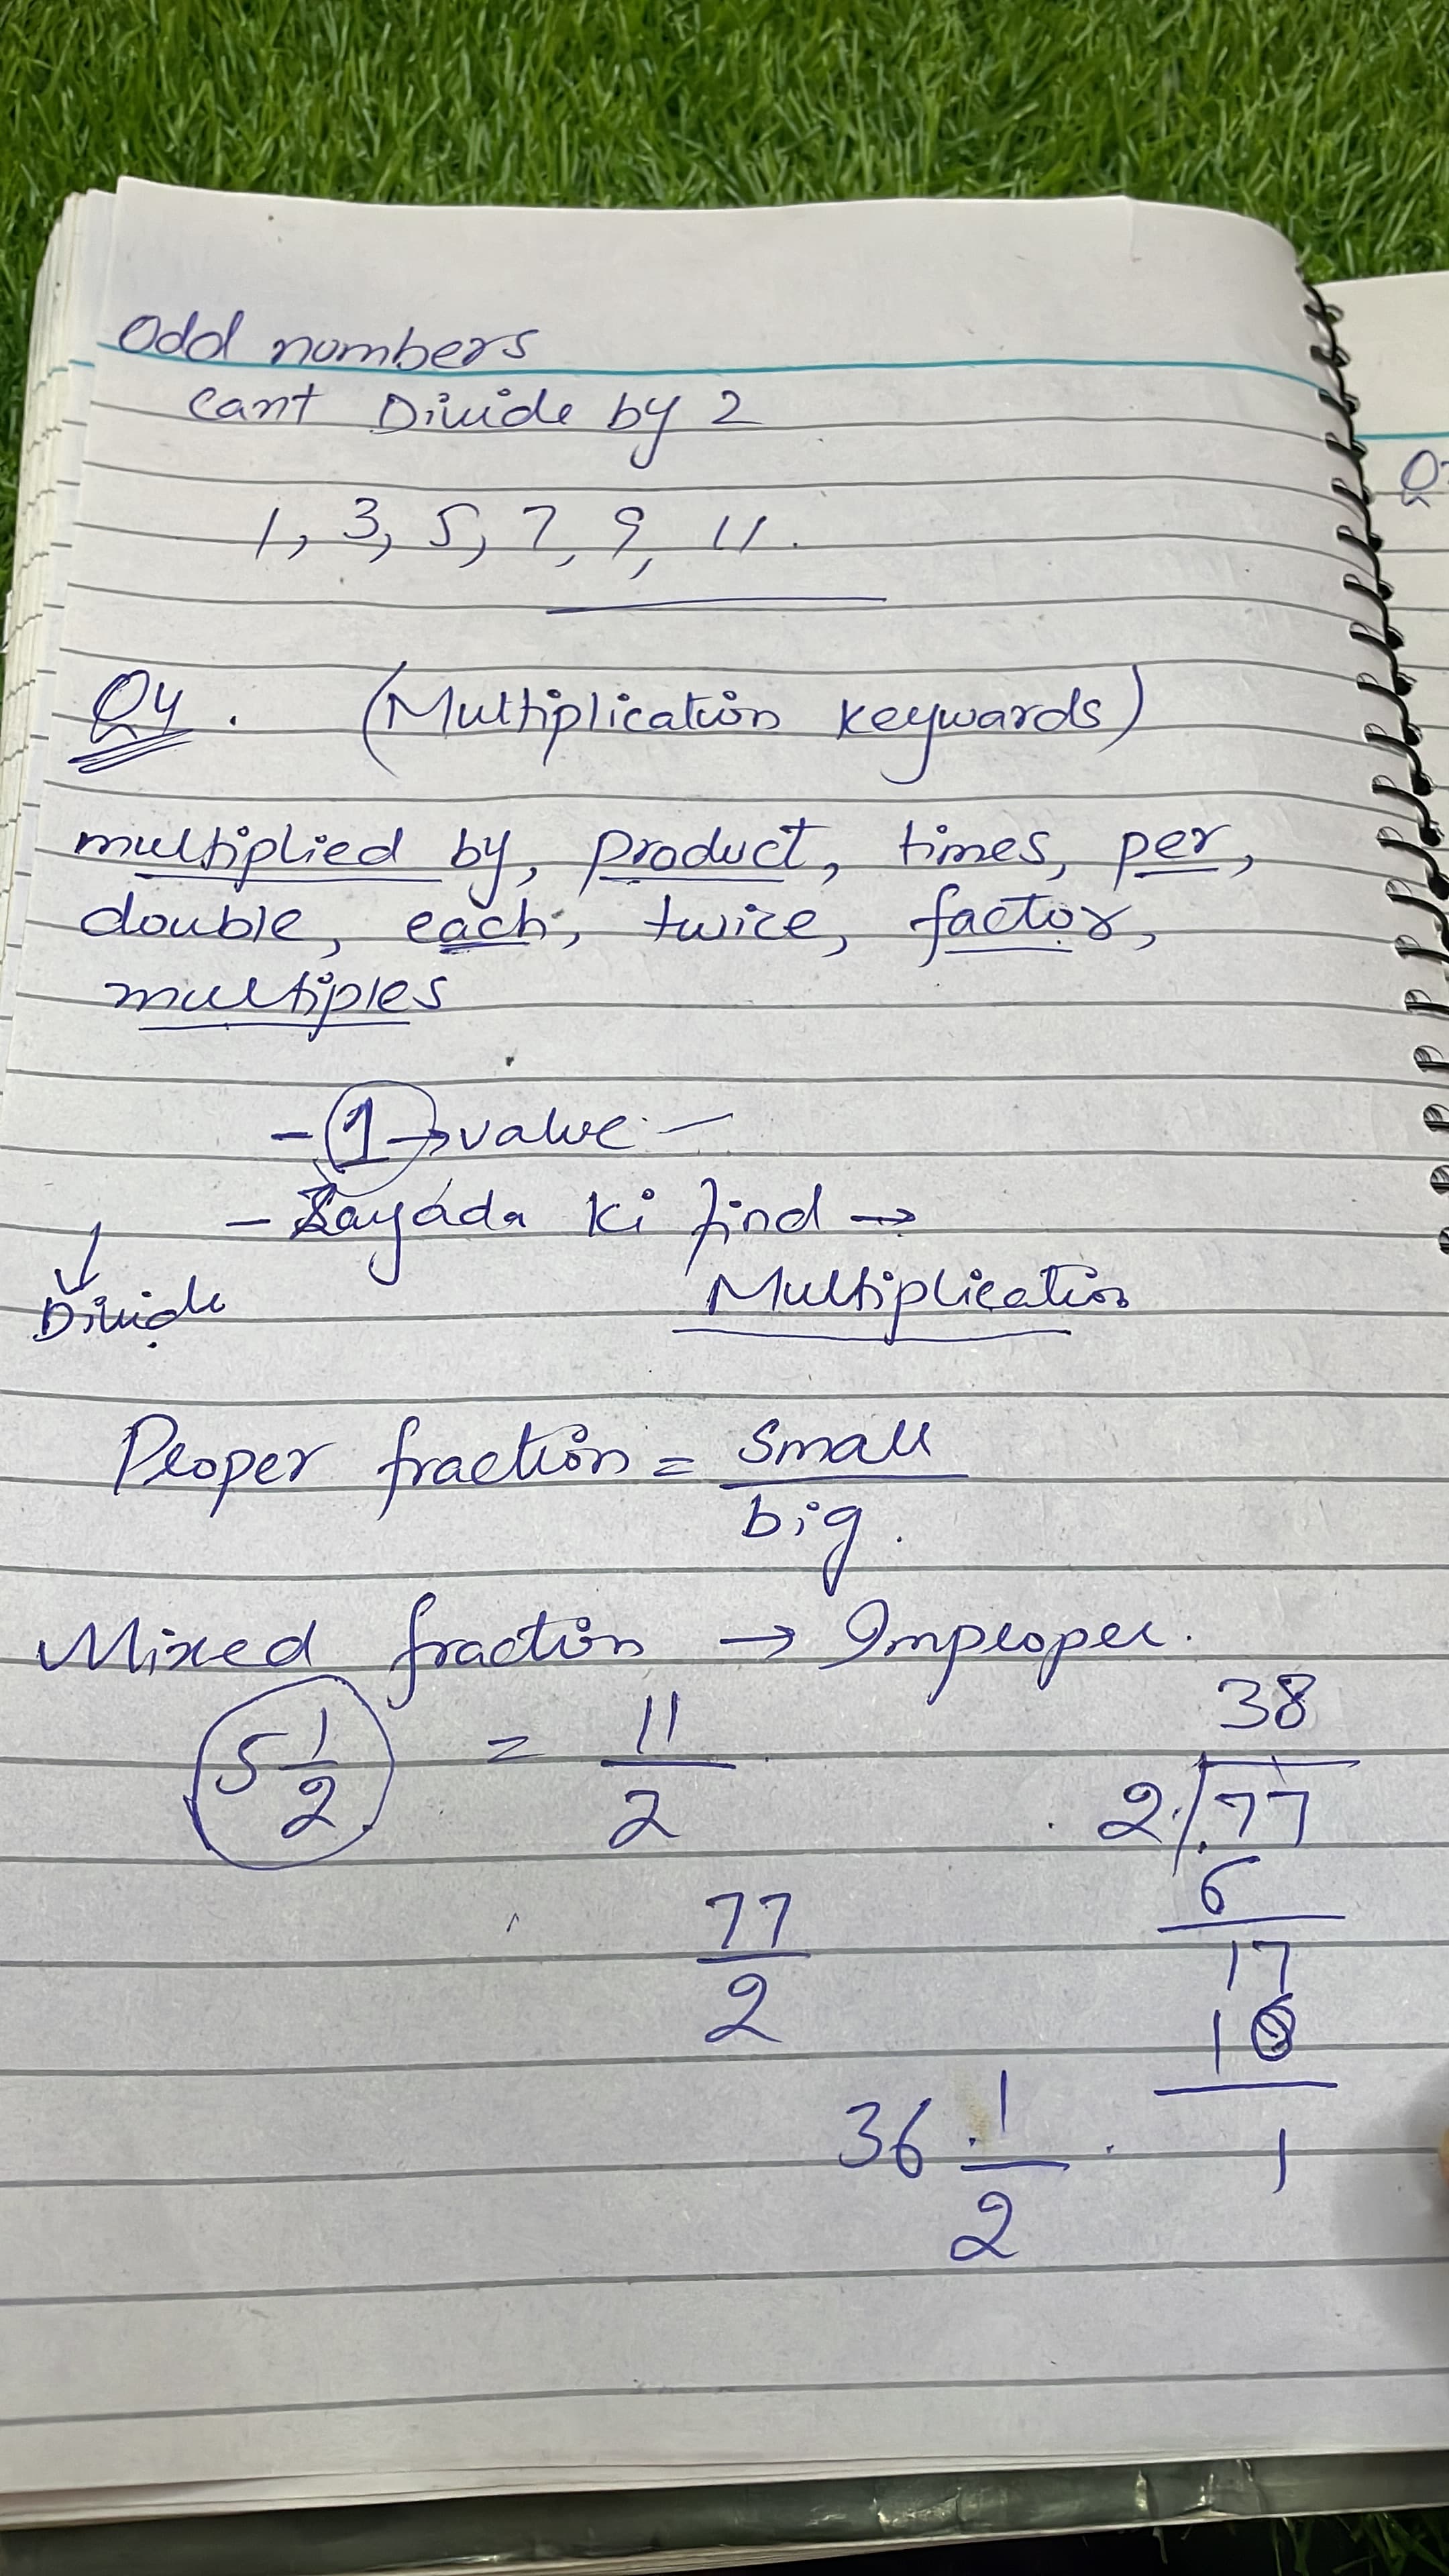 Odd numbers
cant Divide by 2
1, 3, 5, 7, 9, 11.
Q4. (Multiplication keywards)
multiplied by, product, times, per,
double, each, twice, factor,
multiples
- 1 → value :-
- Zayada ki find →
Divide
Multiplication
Proper fraction = small
big.
Mixed fraction → Improper.
5 1/2 = 11/2
38
2 77
6
17
16
1
77/2
36 1/2
Q